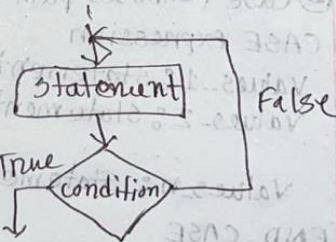 Statement
False
True
condition